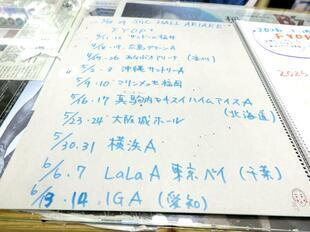 SGC HALL ARIAKE
4/11.12 サンドーム福井
4/18.19 広島グリーンA
4/25.26 あなぶきアリーナ (香川)
5/2.3 沖縄サントリーA
5/9.10 マリンメッセ福岡
5/16.17 真駒内セキスイハイムアイスA
(北海道)
5/23.24 大阪城ホール
5/30.31 横浜A
6/6.7 LaLa A 東京ベイ (千葉)
6/13.14 IGA (愛知)
2025